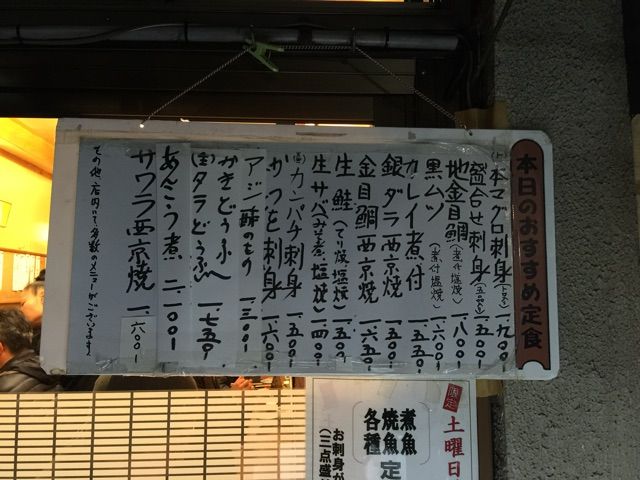 本日のおすすめ定食
本マグロ刺身 一.九〇〇
盛合せ刺身(五品) 一.五〇〇
地金目鯛(煮付塩焼) 一.八〇〇
黒ムツ(煮付塩焼) 一.六〇〇
カレイ煮付 一.五五〇
銀ダラ西京焼 一.五五〇
金目鯛西京焼 一.六五〇
生鮭(てり焼塩焼) 一.五〇〇
生サバ(みそ煮.塩焼) 一.四〇〇
カンパチ刺身 一.五〇〇
かつを刺身 一.六〇〇
アジ酢のもの 一.三〇〇
かきどうふ
タラどうふ 一.七五〇
あんこう煮 二.一〇〇
サワラ西京焼 一.六〇〇
その他店内にて多数のメニューがございます
限定
土曜日
煮魚
焼魚
各種
定
お刺身が
(三点盛